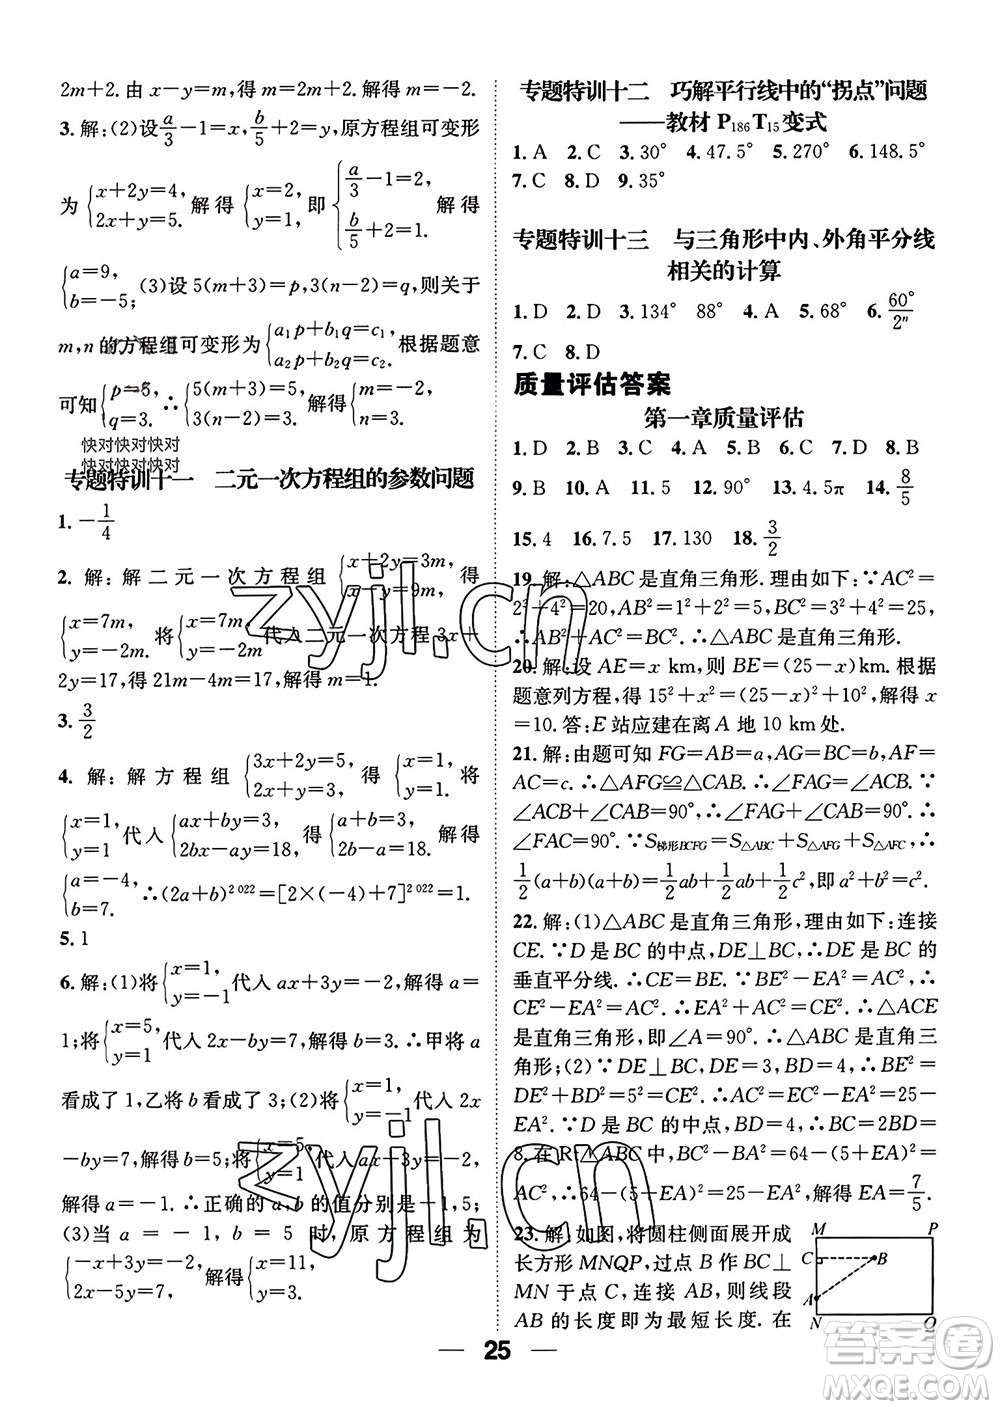 2m+2. 由 x-y=m, 得 m=2m+2. 解得 m=-2.
3. 解:(2)设 a/3-1=x, b/5+2=y, 原方程组可变形
为 {x+2y=4, 2x+y=5. 解得 {x=2, y=1. 即 {a/3-1=2, b/5+2=1. 解得
{a=9, b=-5; (3)设 5(m+3)=p, 3(n-2)=q, 则关于
m, n 的方程组可变形为 {a₁p+b₁q=c₁, a₂p+b₂q=c₂. 根据题意
可知 {p=5, q=3. ∴ {5(m+3)=5, 3(n-2)=3. 解得 {m=-2, n=3.
快对快对快对
快对快对快对
专题特训十一 二元一次方程组的参数问题
1. -1/4
2. 解:解二元一次方程组 {x+2y=3m, x-y=9m, 得
{x=7m, y=-2m. 将 {x=7m, y=-2m 代入二元一次方程 3x+
2y=17, 得 21m-4m=17, 解得 m=1.
3. 3/2
4. 解:解方程组 {3x+2y=5, 2x+y=3, 得 {x=1, y=1. 将
{x=1, y=1 代入 {ax+by=3, 2bx-ay=18, 得 {a+b=3, 2b-a=18. 解得
{a=-4, b=7. ∴(2a+b)²⁰²²=[2×(-4)+7]²⁰²²=1.
5. 1
6. 解:(1)将 {x=1, y=-1 代入 ax+3y=-2, 解得 a=
1; 将 {x=5, y=1 代入 2x-by=7, 解得 b=3. ∴甲将 a
看成了 1, 乙将 b 看成了 3; (2)将 {x=1, y=-1 代入 2x
-by=7, 解得 b=5; 将 {x=5, y=1 代入 ax+3y=-2,
解得 a=-1. ∴正确的 a, b 的值分别是-1, 5;
(3)当 a=-1, b=5 时, 原方程组为
{-x+3y=-2, 2x-5y=7, 解得 {x=11, y=3.
专题特训十二 巧解平行线中的“拐点”问题
——教材 P₁₈₆T₁₅ 变式
1. A 2. C 3. 30° 4. 47.5° 5. 270° 6. 148.5°
7. C 8. D 9. 35°
专题特训十三 与三角形中内、外角平分线
相关的计算
1. D 2. D 3. 134° 88° 4. A 5. 68° 6. 60°/2ⁿ
7. C 8. D
质量评估答案
第一章质量评估
1. D 2. B 3. C 4. A 5. B 6. C 7. D 8. B
9. B 10. A 11. 5 12. 90° 13. 4.5π 14. 8/5
15. 4 16. 7.5 17. 130 18. 3/2
19. 解:△ABC 是直角三角形. 理由如下:∵AC²=
2²+4²=20, AB²=1²+2²=5, BC²=3²+4²=25,
∴AB²+AC²=BC². ∴△ABC 是直角三角形.
20. 解:设 AE=x km, 则 BE=(25-x)km. 根据
题意列方程, 得 15²+x²=(25-x)²+10², 解得 x
=10. 答:E 站应建在离 A 地 10 km 处.
21. 解:由题可知 FG=AB=a, AG=BC=b, AF=
AC=c. ∴△AFG≌△CAB. ∴∠FAG=∠ACB. ∵
∠ACB+∠CAB=90°, ∴∠FAG+∠CAB=90°. ∴
∠FAC=90°. ∵S梯形BCFG=S△ABC+S△AFG+S△AFC, ∴
1/2(a+b)(a+b)=1/2ab+1/2ab+1/2c², 即 a²+b²=c².
22. 解:(1)△ABC 是直角三角形, 理由如下:连接
CE. ∵D 是 BC 的中点, DE⊥BC, ∴DE 是 BC 的
垂直平分线. ∴CE=BE. ∵BE²-EA²=AC², ∴
CE²-EA²=AC². ∴EA²+AC²=CE². ∴△ACE
是直角三角形, 即∠A=90°. ∴△ABC 是直角三
角形; (2)∵DE⊥BC, DE=3, BD=4, ∴BE²=
DE²+BD²=25=CE². ∴AC²=CE²-EA²=25-
EA². ∵D 是 BC 的中点, BD=4, ∴BC=2BD=
8. 在 Rt△ABC 中, AC²=BC²-BA²=64-(5+EA)²,
∴64-(5+EA)²=25-EA². 解得 EA=7/5.
23. 解:如图, 将圆柱侧面展开成
长方形 MNQP, 过点 B 作 BC⊥
MN 于点 C, 连接 AB, 则线段
AB 的长度即为最短长度. 在
M P
C B
A
N Q
25
zyjl.cn
zyjl.cn
答案圈
MXQE.COM